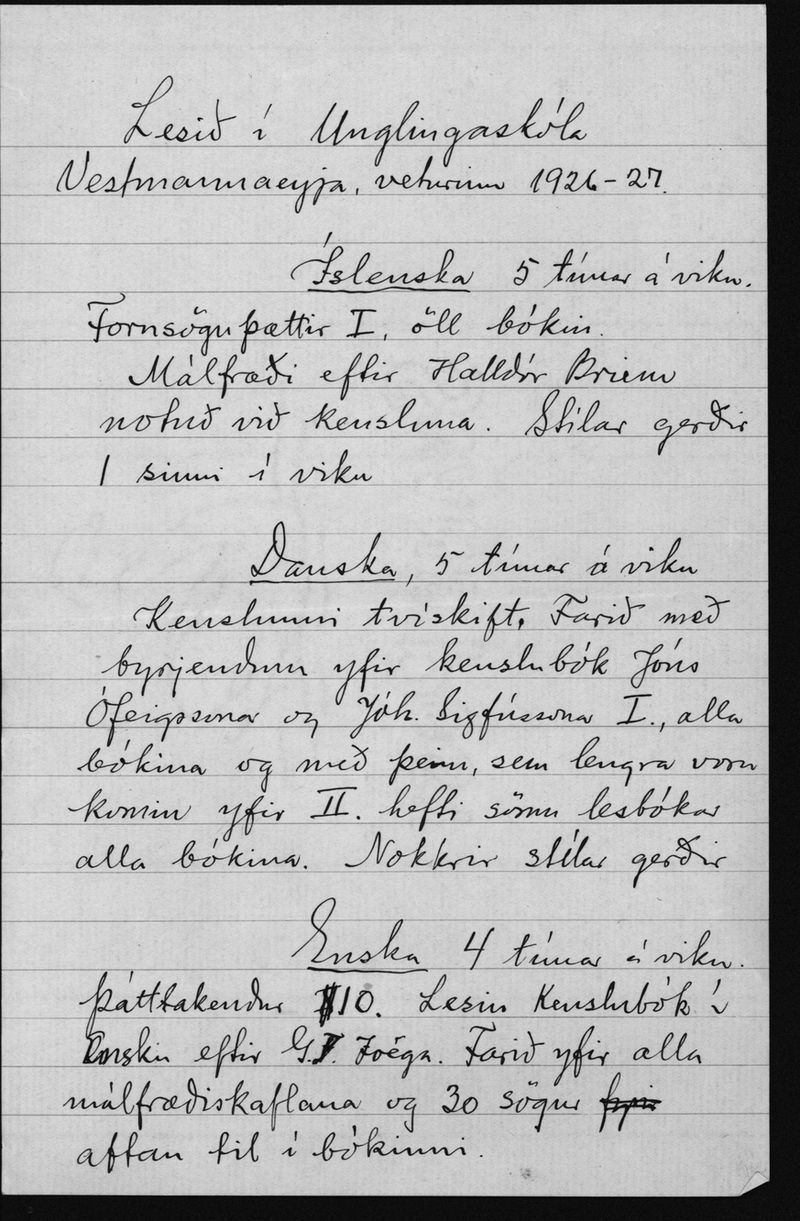 Lesið í Unglingaskóla
Vestmannaeyja, veturinn 1926-27.
Íslenska 5 tímar á viku.
Fornsöguþættir I, öll bókin.
Málfræði eftir Halldór Briem
notuð við kensluna. Stílar gerðir
1 sinni í viku
Danska, 5 tímar á viku
Kenslunni tvískift. Farið með
byrjendum yfir kenslubók Jóns
Ófeigssonar og Jóh. Sigfússona I., alla
bókina og með þeim, sem lengra voru
komin yfir II. hefti sömu lesbókar
alla bókina. Nokkrir stílar gerðir
Enska 4 tímar á viku.
Þátttakendur 10. Lesin Kenslubók í
Ensku eftir G.T. Zoëga. Farið yfir alla
málfræðiskaflana og 30 sögur
aftan til í bókinni.